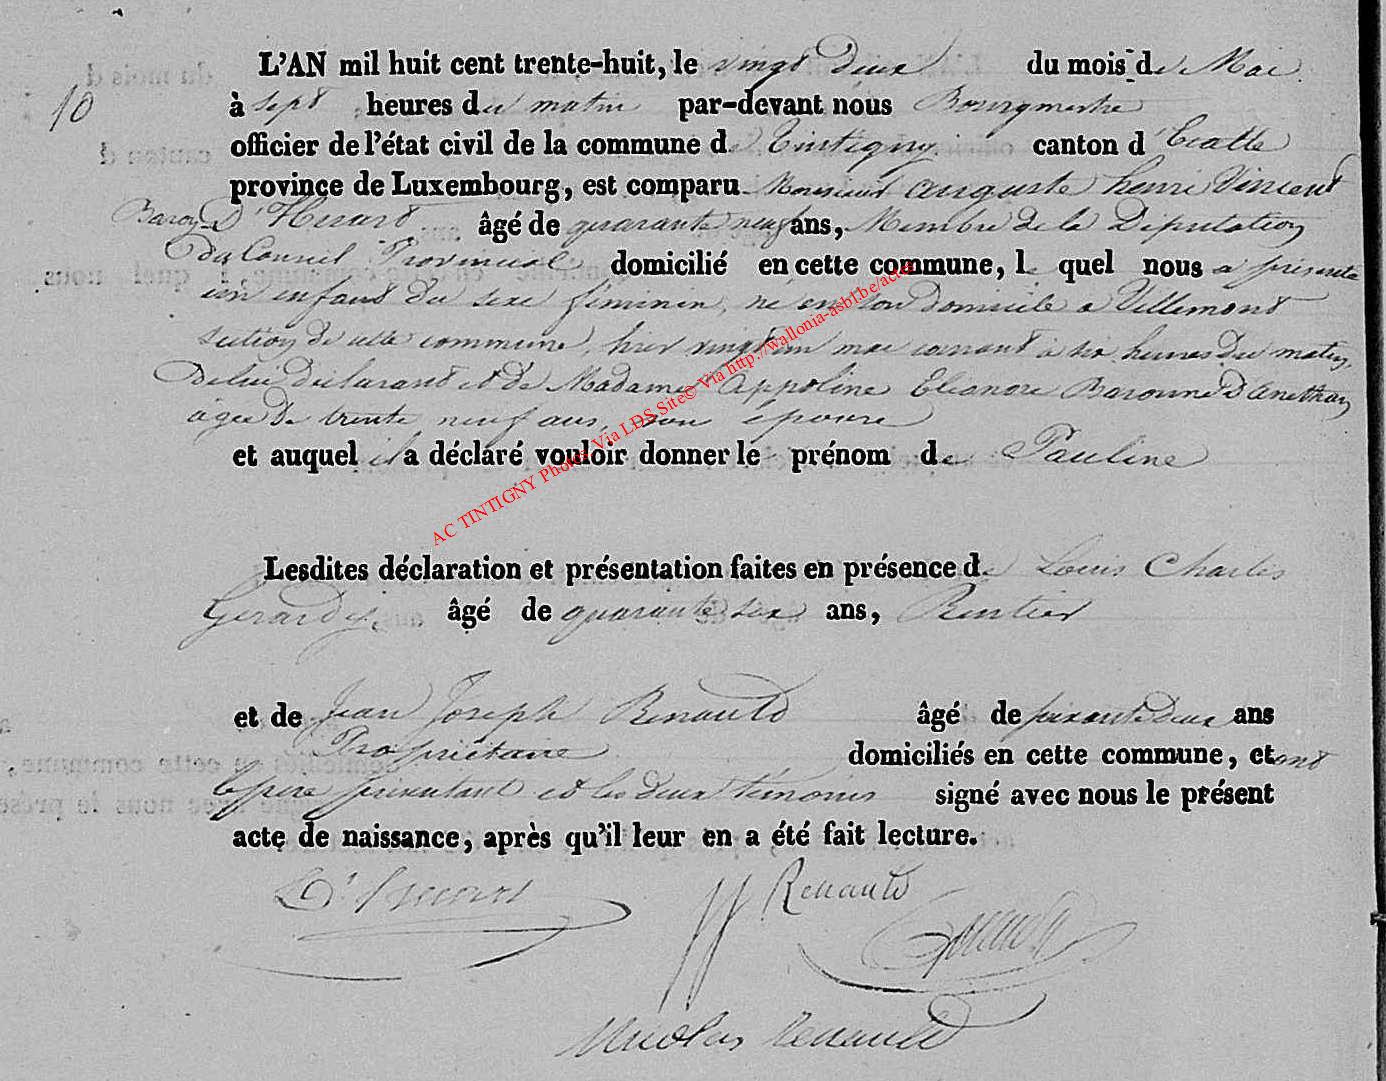 L'AN mil huit cent trente-huit, le vingt deux du mois de Mai
10
à sept heures du matin par-devant nous Bourgmestre
officier de l'état civil de la commune de Tintigny canton d'Etalle
province de Luxembourg, est comparu Monsieur Auguste henri Vincent
Baron D'Huart âgé de quarante neuf ans, Membre de la Députation
du Conseil Provincial domicilié en cette commune, le quel nous a présenté
un enfant du sexe féminin, né en son domicile a Villemont
section de cette commune, hier vingt un mai courant à six heures du matin,
De lui déclarant et de Madame Appoline Eleonore Baronne D'Anethan
agée de trente neuf ans, son épouse
et auquel il a déclaré vouloir donner le prénom de Pauline
AC TINTIGNY Photos Via LDS Site© Via http://wallonia-asbl.be/actes
Lesdites déclaration et présentation faites en présence de Louis Charles
Gerardy, âgé de quarante six ans, Rentier
et de Jean Joseph Renauld âgé de soixante deux ans
Propriétaire domiciliés en cette commune, et ont
le père présentant et les deux témoins signé avec nous le présent
acte de naissance, après qu'il leur en a été fait lecture.
D'Huart JJ Renauld
Nicolas Renauld